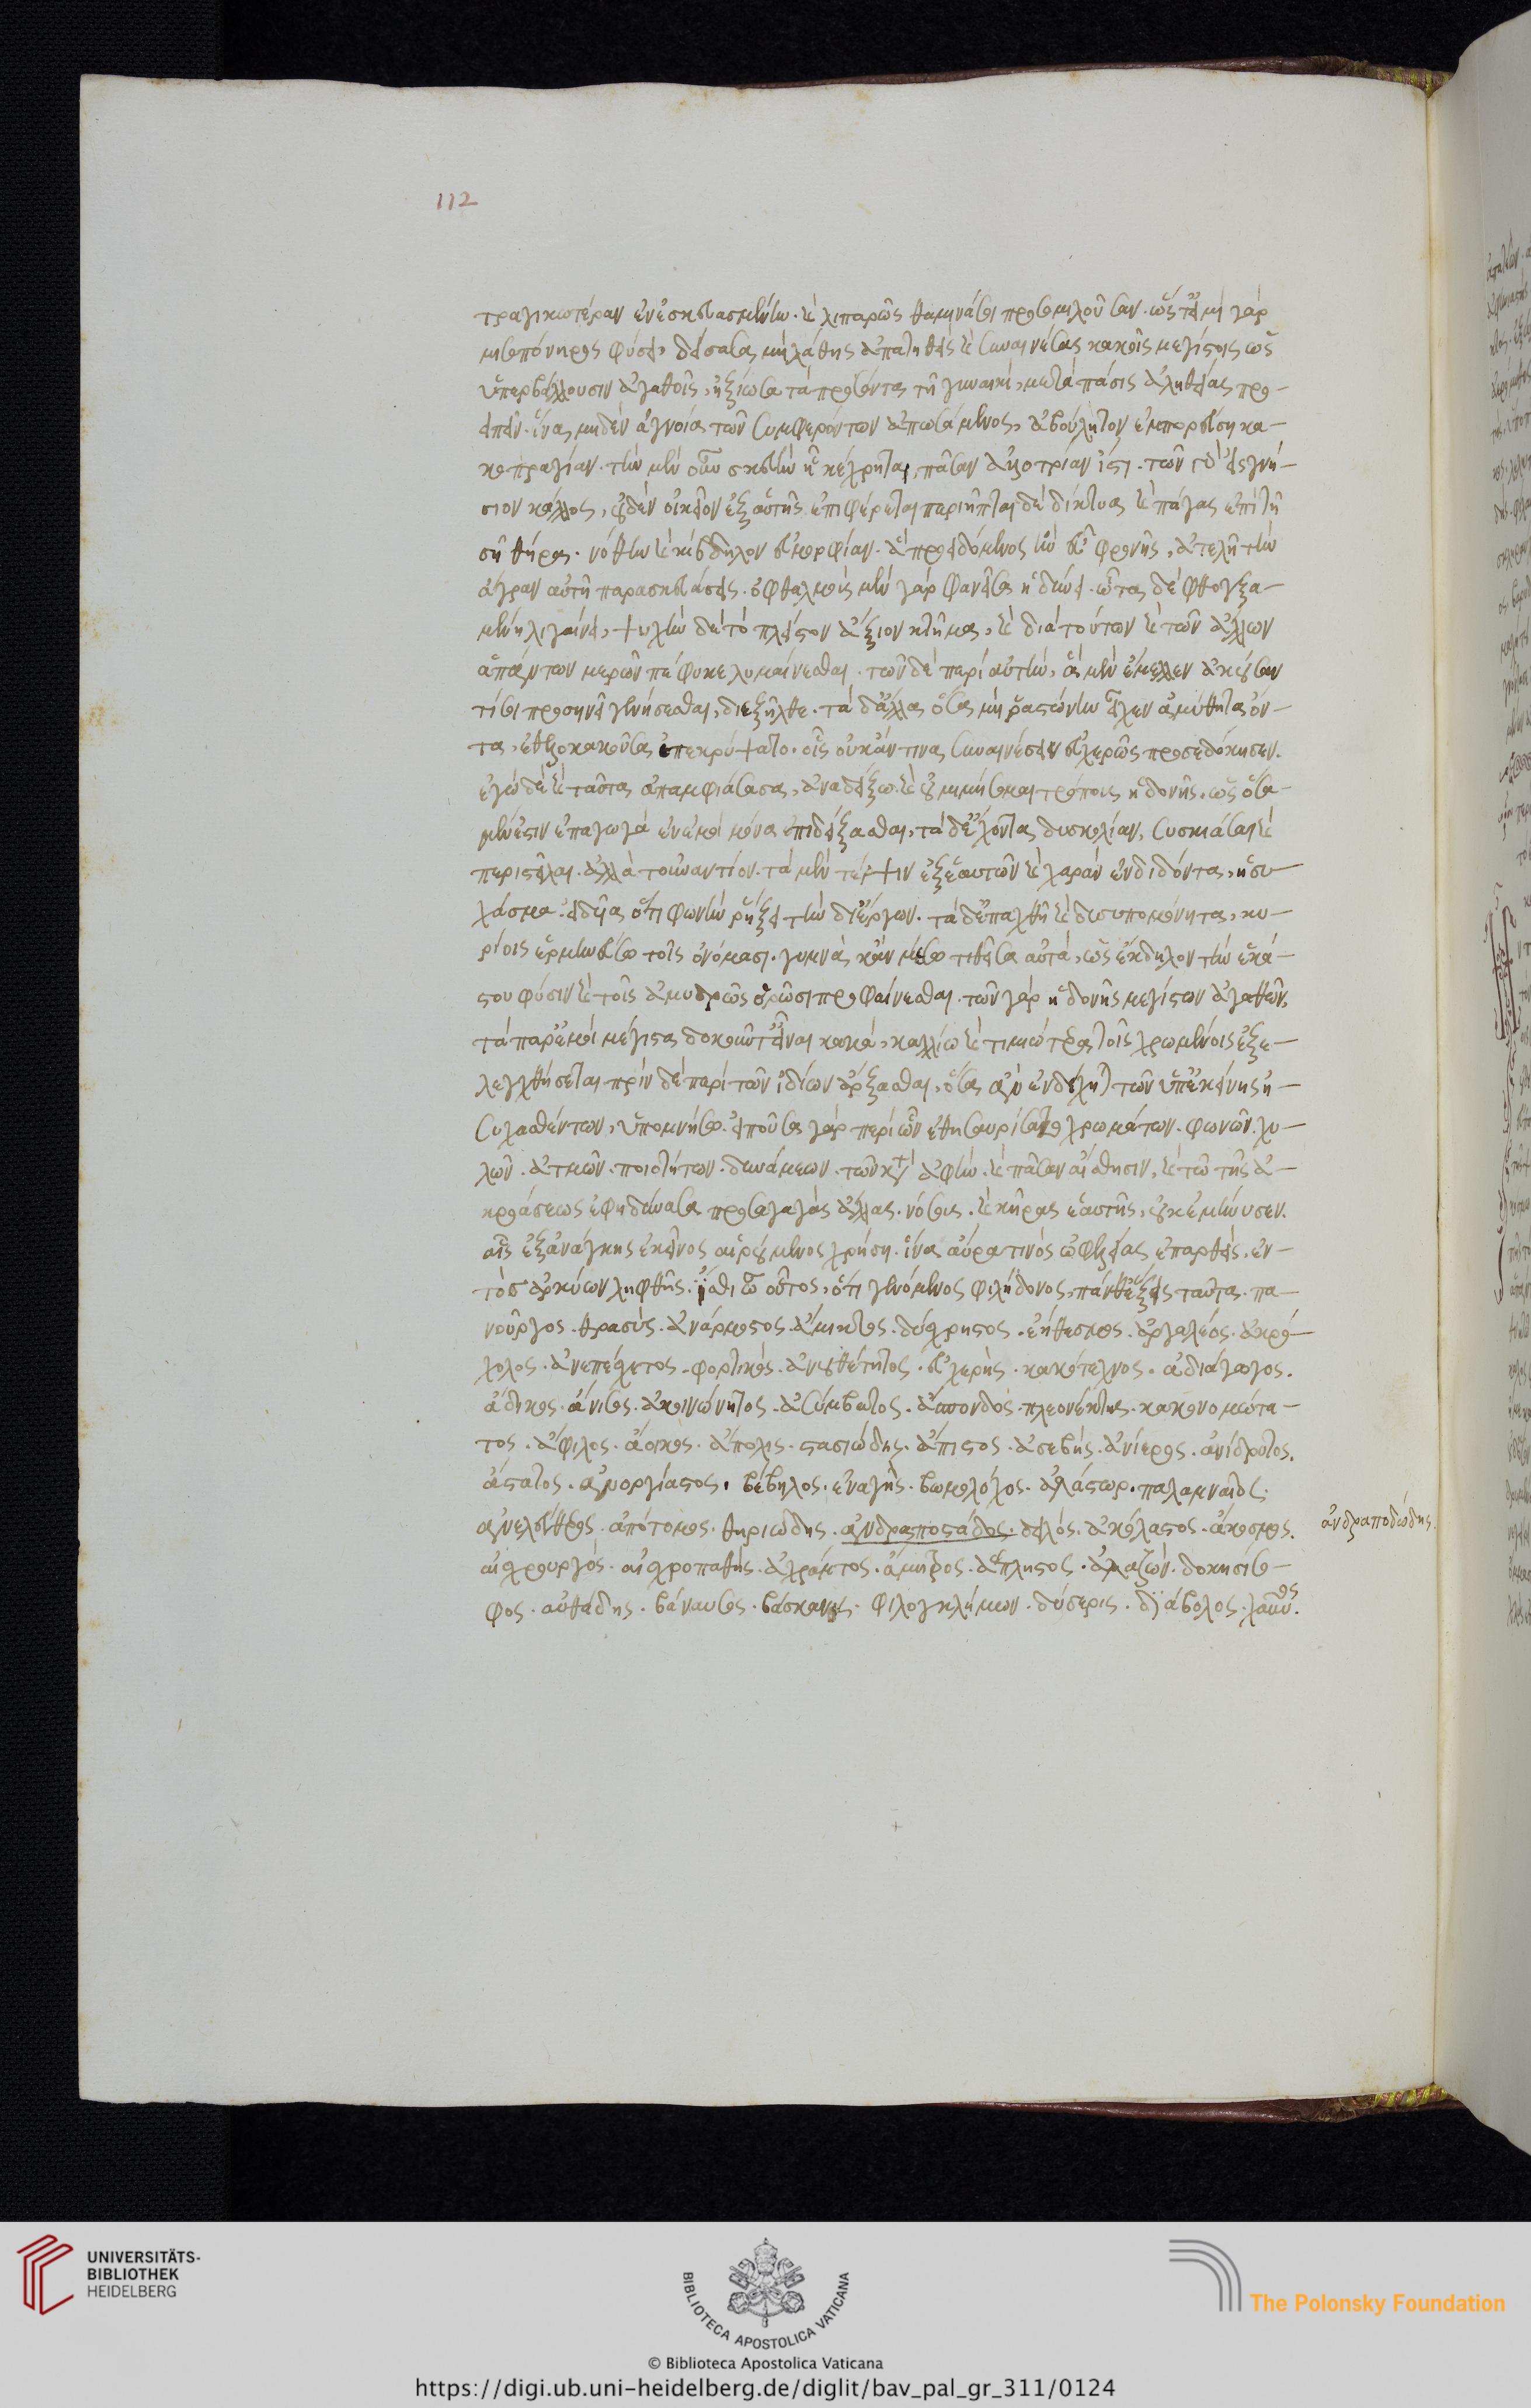 112
τραγικωτέραν ἐνεσκευασμένην. καὶ λιπαρῶς θαμινάσι προσομιλοῦσαν. ὡς τ' εἰμὶ γὰρ
μισοπόνηρος φύσει, δείσασα μὴ λάθης ἀπατηθεὶς καὶ συναινέσας κακοῖς μεγίστοις ὡς
ὑπερβάλλουσιν ἀγαθοῖς, ἠξίωσα τὰ προσόντα τῇ γυναικὶ, μετὰ πάσης ἀληθείας προ-
ειπεῖν. ἵνα μηδὲν ἀγνοία τῶν συμφερόντων ἀπωσάμενος, ἀβούλητον ἐμπορεύση κα-
κοπραγίαν. τὴν μὲν οὖν σκευὴν ἧ κέχρηται, πᾶσαν ἀλλοτρίαν ἴσθι. τῶν γὰρ εἰς γνή-
σιον κάλλος, οὐδὲν οἰκεῖον ἐξ αὑτῆς ἐπιφέρεται περιῆπται δὲ δίκτυα καὶ πάγας ἐπὶ τῇ
σῇ θήρα. νόθην καὶ κίβδηλον εὐμορφίαν. ἃ προειδόμενος ἢν εὖ φρονῇς, ἀτελῆ τὴν
ἄγραν αὐτῇ παρασκευάσεις. ὀφθαλμοῖς μὲν γὰρ φανεῖσα ἡδύνει. ὦτα δὲ φθεγξα-
μένη λιγαίνει, ψυχὴν δὲ τὸ πλείστου ἄξιον κτῆμα, καὶ διὰ τούτων καὶ τῶν ἄλλων
ἁπάντων μερῶν πέφυκε λυμαίνεσθαι. τῶν δὲ περὶ αὐτὴν, ἃ μὲν ἔμελλεν ἀκούσαν
τί σοι προσηνῆ γενήσεσθαι, διεξῆλθε. τὰ δ' ἄλλα ὅσα μὴ ῥαστώνην εἶχεν ἀμύθητα ὄν-
τα, ἐθελοκακοῦσα ἐπεκρύψατο. οἷς οὐκ ἄν τινα συναινέσειν εὐχερῶς προσεδόκησεν.
ἐγὼ δὲ καὶ ταῦτα ἀπαμφιάσασα, ἀναδείξω. καὶ οὐ μιμήσομαι τρόπους ἡδονῆς. ὡς ὅσα
μέν ἐστιν ἐπαγωγὰ ἐν ἐμοὶ μόνα ἐπιδείξασθαι, τὰ δ' ἔχοντα δυσκολίαν, συσκιάσαι καὶ
περιστεῖλαι. ἀλλὰ τοὐναντίον. τὰ μὲν τέρψιν ἐξ ἑαυτῶν καὶ χαρὰν ἐνδιδόντα, ἡσυ-
χάσομαι. εἰδυῖα ὅτι φωνὴν ῥήξει τὴν δι' ἔργων. τὰ δ' ἐπαχθῆ καὶ δυσυπομόνητα, κυ-
ρίοις ἑρμηνεύσω τοῖς ὀνόμασι. γυμνὰ κἀν μέσω τιθεῖσα αὐτὰ, ὡς ἔκδηλον τὴν ἑκά-
στου φύσιν καὶ τοῖς ἀμυδρῶς ὁρῶσι προφαίνεσθαι. τῶν γὰρ ἡδονῆς μεγίστων ἀγαθῶν,
τὰ παρ' ἐμοὶ μέγιστα δοκοῦντ' εἶναι κακὰ, καλλίω καὶ τιμιώτερα τοῖς χρωμένοις ἐξε-
λεγχθήσεται πρὶν δὲ περὶ τῶν ἰδίων ἄρξασθαι, ὅσα ἂν ἐνδέχηται τῶν ὑπ' ἐκείνης ἡ-
συχασθέντων, ὑπομνήσω. εἰποῦσα γὰρ περὶ ὧν ἐθησαυρίσατο χρωμάτων. φωνῶν. χυ-
λῶν. ἀτμῶν. ποιοτήτων. δυνάμεων. τῶν κατὰ ἁφὴν. καὶ πᾶσαν αἴσθησιν, καὶ τῶ τῆς ἀ-
κροάσεως ἐφηδύνασα προσαγωγὰς ἄλλας. νόσους. καὶ κῆρας ἑαυτῆς, οὐκ ἐμήνυσεν.
αἷς ἐξ ἀνάγκης ἐκεῖνος αἱρούμενος χρήση. ἵνα αὔρα τινὸς ὠφελείας ἐπαρθεὶς, ἐν-
τὸς ἀρκύων ληφθῇς. ἴσθι ὦ οὗτος, ὅτι γενόμενος φιλήδονος, πάνθ' ἕξεις ταῦτα. πα-
νοῦργος. θρασὺς. ἀνάρμοστος. ἄμικτος. δύσχρηστος. ἔκθεσμος. ἀργαλέος. ἀκρό-
χολος. ἀνεπίσχετος. φορτικὸς. ἀνουθέτητος. εὐχερὴς. κακότεχνος. ἀδιάγωγος.
ἄδικος. ἄνισος. ἀκοινώνητος. ἀσύμβατος. ἄσπονδος. πλεονέκτης. κακονομώτα-
τος. ἄφιλος. ἄοικος. ἄπολις. στασιώδης. ἄπιστος. ἀσεβής. ἀνίερος. ἀνίδρυτος.
ἄστατος. ἀνοργίαστος. βέβηλος. ἐναγὴς. βωμολόχος. ἀλάστωρ. παλαμναῖος.
ἀνελεύθερος. ἀπότομος. θηριώδης. ἀνδραποστάδος. δειλός. ἀκόλαστος. ἄκοσμος.
ἀνδραποδώδης.
αἰσχρουργὸς. αἰσχροπαθὴς. ἀχρώματος. ἄμετρος. ἄπληστος. ἀλαζών. δοκησίσο-
φος. αὐθάδης. βάναυσος. βάσκανος. φιλεγκλήμων. δύσερις. διάβολος. χαῦνος.
UNIVERSITÄTS-
BIBLIOTHEK
HEIDELBERG
BIBLIOTECA APOSTOLICA VATICANA
The Polonsky Foundation
© Biblioteca Apostolica Vaticana
https://digi.ub.uni-heidelberg.de/diglit/bav_pal_gr_311/0124